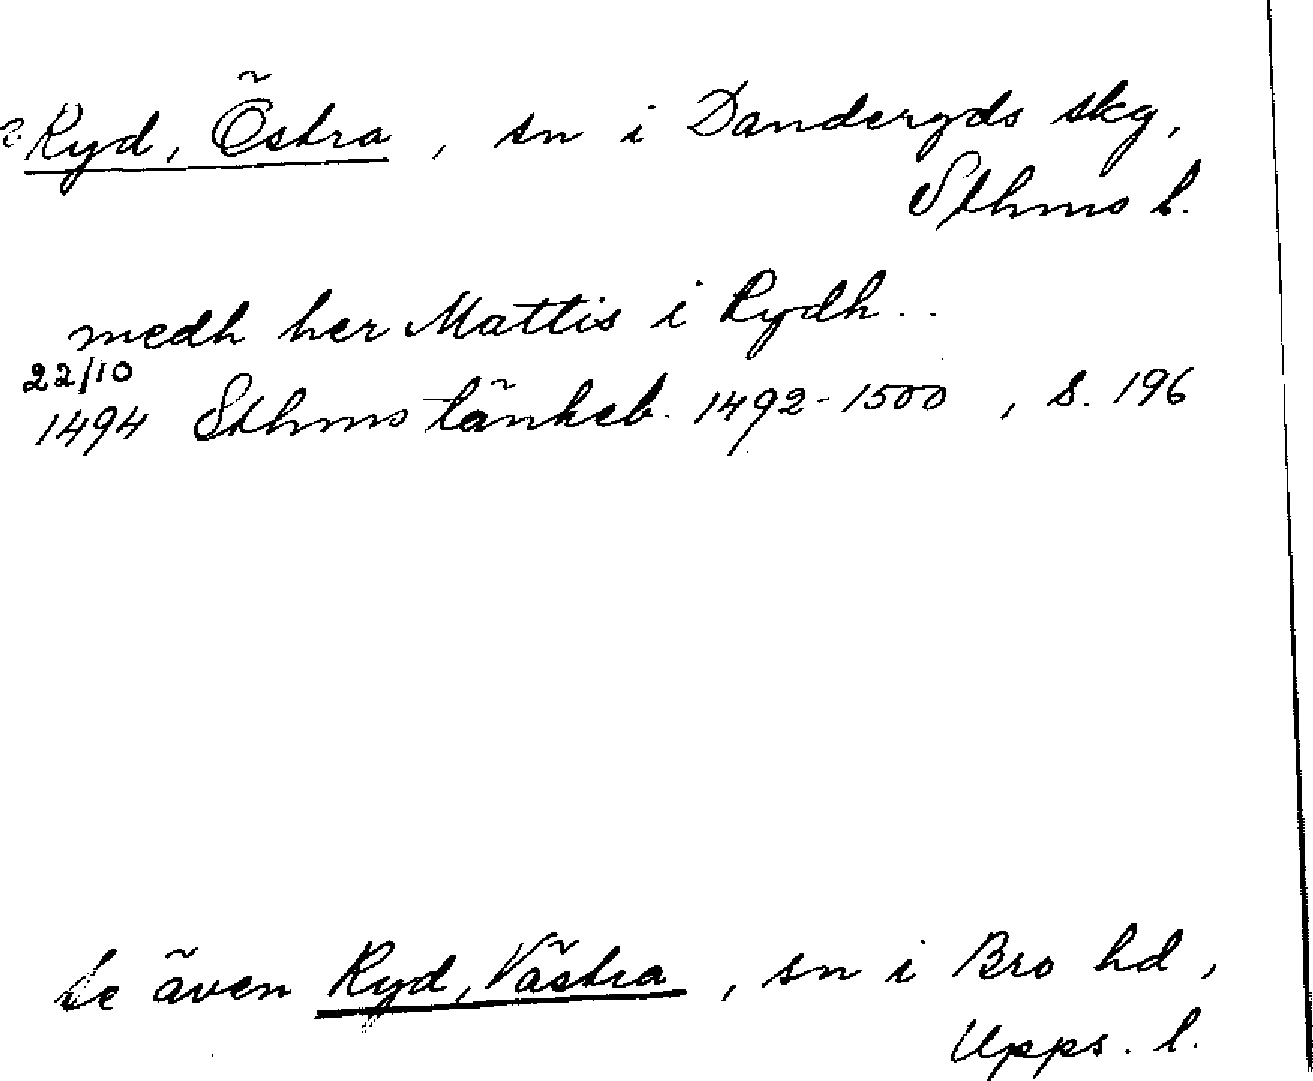 ? Ryd, Östra, sn i Danderyds skg,
Sthms l.
medh her Mattis i Rydh..
22/10
1494 Sthms tänkeb. 1492-1500, s. 196
Se även Ryd, Västra, sn i Bro hd,
Upps. l.